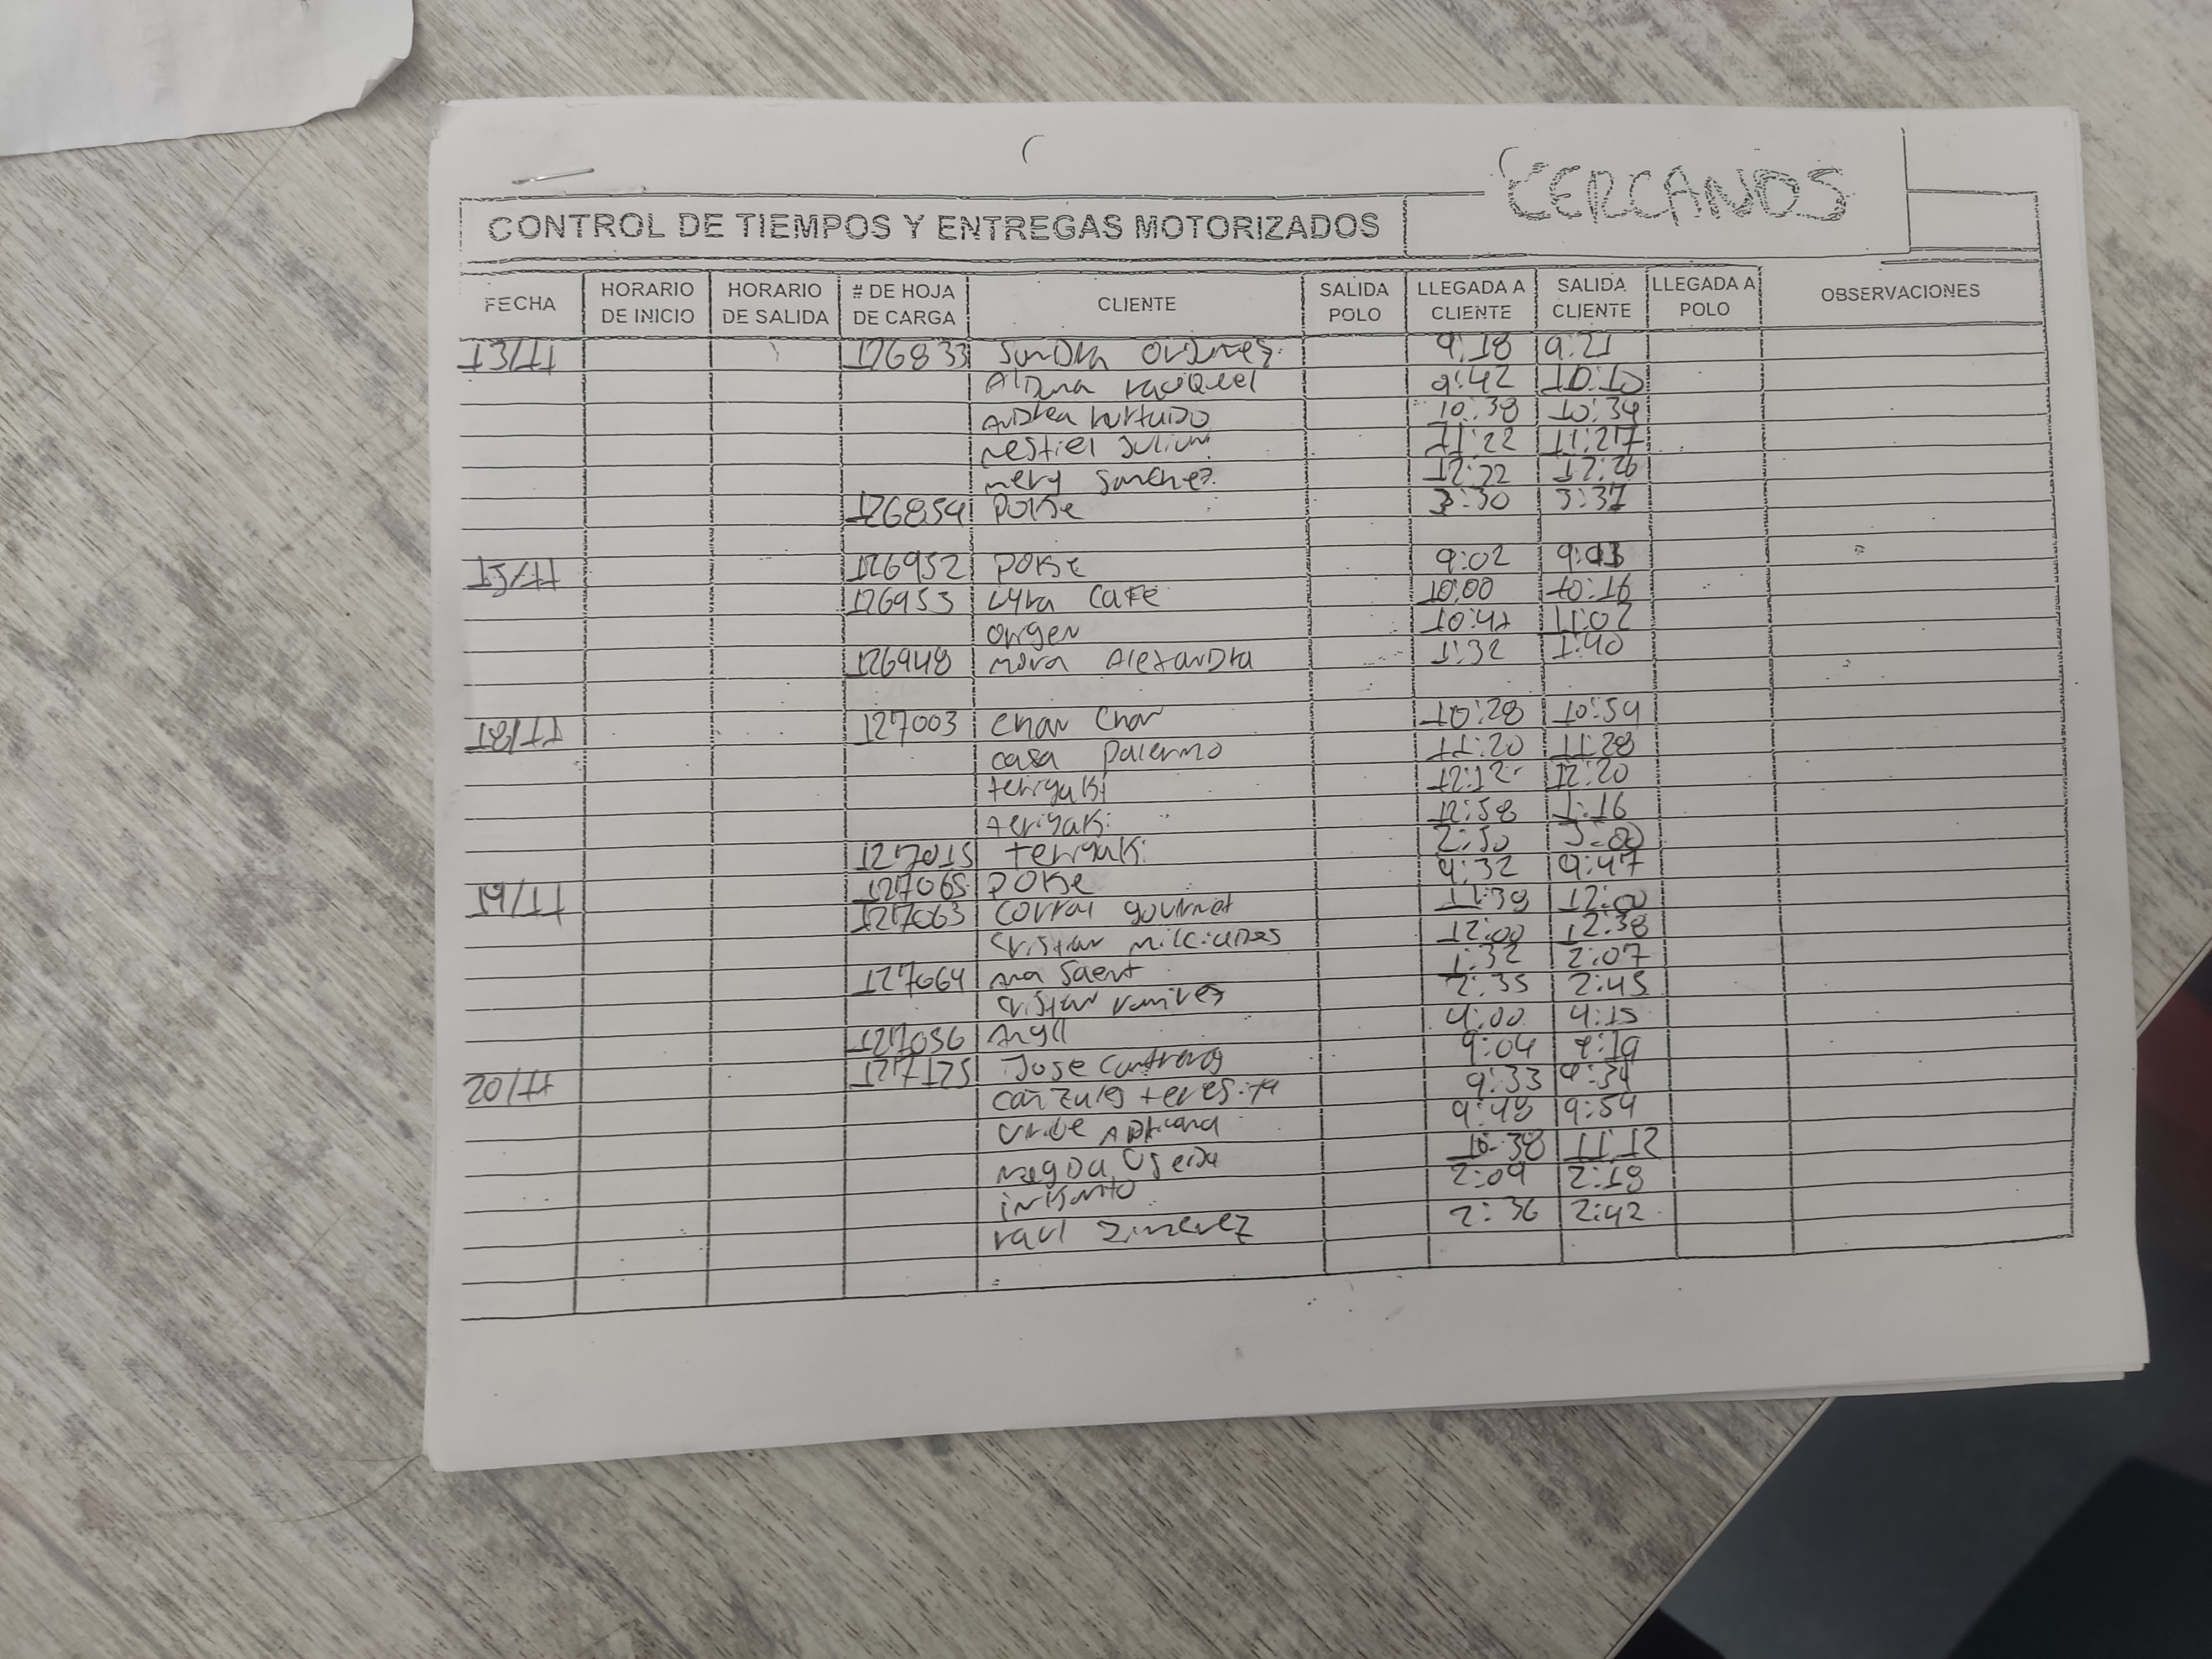 CERCANOS
CONTROL DE TIEMPOS Y ENTREGAS MOTORIZADOS
FECHA HORARIO DE INICIO HORARIO DE SALIDA # DE HOJA DE CARGA CLIENTE SALIDA POLO LLEGADA A CLIENTE SALIDA CLIENTE LLEGADA A POLO OBSERVACIONES
13/11 126833 9:18 9:21
9:42 10:10
10:38 10:39
11:22 11:27
mery Sanchez 12:22 12:26
126854 POKe 3:30 3:37
15/11 126952 POKe 9:02
126953 Lyra Cafe 10:00 10:16
origen 10:47 11:02
126948 mora Alexandra 1:32 1:40
18/11 127003 Char Char 10:28 10:54
casa Palermo 11:20 11:28
teriyaki 12:12 12:20
teriyaki 12:58 1:16
127015 teriyaki 2:50 3:00
19/11 127065 POKe 9:32 9:47
127063 Corral gourmet 11:38 12:00
12:00 12:38
127064 1:32 2:07
cristian ramires 2:35 2:45
127056 4:00 4:15
20/11 127125 Jose Contreras 9:04 9:19
teresita 9:33 9:34
Uribe Adriana 9:48 9:54
10:38 11:12
2:09 2:18
raul Jimenez 2:36 2:42